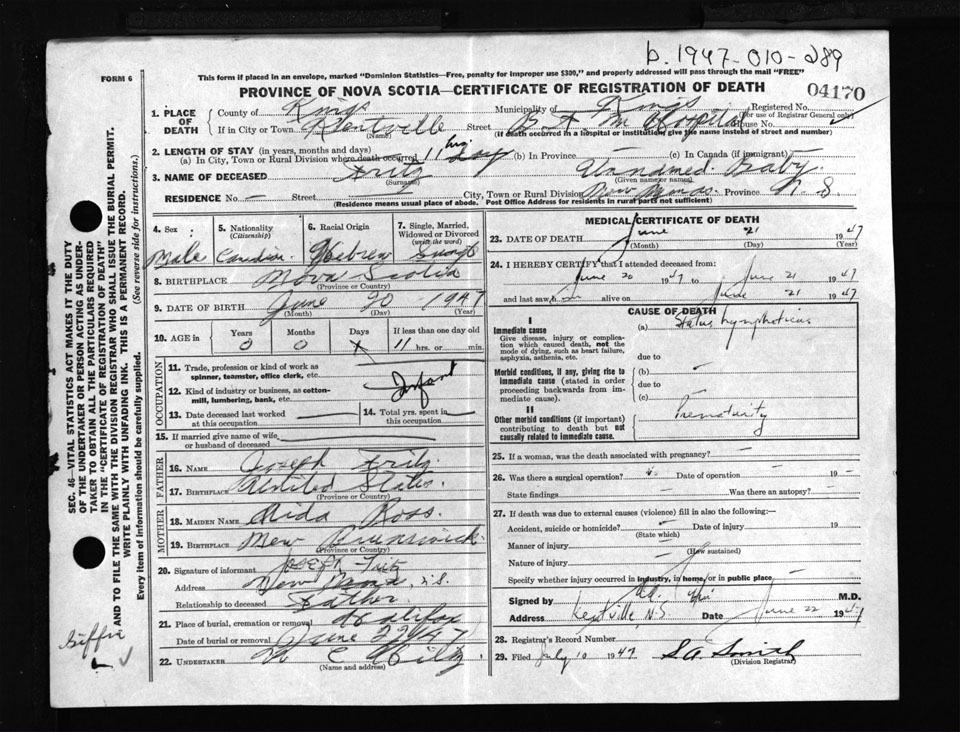 b. 1947-010-289
FORM 6
This form if placed in an envelope, marked "Dominion Statistics—Free, penalty for improper use $300," and properly addressed will pass through the mail "FREE"
PROVINCE OF NOVA SCOTIA—CERTIFICATE OF REGISTRATION OF DEATH
04170
1. PLACE OF DEATH
County of Kings
Municipality of Kings
Registered No.
(For use of Registrar General only)
If in City or Town Kentville
(Name)
Street B. F. M. Hospital
House No.
(If death occurred in a hospital or institution, give the name instead of street and number)
2. LENGTH OF STAY (in years, months and days)
(a) In City, Town or Rural Division where death occurred 11 hrs.
(b) In Province
(c) In Canada (if immigrant)
3. NAME OF DECEASED Fritz Unnamed Baby
(Surname)
(Given name or names)
RESIDENCE No. — Street
City, Town or Rural Division New Minas. Province N S
(Residence means usual place of abode. Post Office Address for residents in rural parts not sufficient)
4. Sex:
Male
5. Nationality
(Citizenship)
Canadian
6. Racial Origin
Hebrew
7. Single, Married, Widowed or Divorced
(write the word)
Single
8. BIRTHPLACE Nova Scotia
(Province or Country)
9. DATE OF BIRTH June 20 1947
(Month) (Day) (Year)
10. AGE in
Years Months Days If less than one day old
0 0 x 11 hrs. or min.
OCCUPATION
11. Trade, profession or kind of work as spinner, teamster, office clerk, etc.
12. Kind of industry or business, as cotton-mill, lumbering, bank, etc.
Infant
13. Date deceased last worked at this occupation
14. Total yrs. spent in this occupation
15. If married give name of wife or husband of deceased
FATHER
16. NAME Joseph Fritz
17. BIRTHPLACE United States.
(Province or Country)
MOTHER
18. MAIDEN NAME Alida Ross.
19. BIRTHPLACE New Brunswick.
(Province or Country)
20. Signature of informant Joseph Fritz
Address New Minas, N.S.
Relationship to deceased Father
21. Place of burial, cremation or removal Halifax
Date of burial or removal June 22/47
22. UNDERTAKER W E Hiltz
(Name and address)
MEDICAL CERTIFICATE OF DEATH
23. DATE OF DEATH June 21 1947
(Month) (Day) (Year)
24. I HEREBY CERTIFY that I attended deceased from:
June 20 1947 June 21 1947
and last saw h im alive on June 21 1947
CAUSE OF DEATH
I
Immediate cause
Give disease, injury or complication which caused death, not the mode of dying, such as heart failure, asphyxia, asthenia, etc.
(a) Status Lymphaticus
due to
Morbid conditions, if any, giving rise to immediate cause (stated in order proceeding backwards from immediate cause).
(b) —
due to
(c) —
II
Other morbid conditions (if important) contributing to death but not causally related to immediate cause.
Prematurity
25. If a woman, was the death associated with pregnancy? —
26. Was there a surgical operation? — Date of operation — 19 —
State findings — Was there an autopsy? —
27. If death was due to external causes (violence) fill in also the following:—
Accident, suicide or homicide? — Date of injury 19
(State which)
Manner of injury
(How sustained)
Nature of injury
Specify whether injury occurred in industry, in home, or in public place —
Signed by M.D.
Address Kentville, N.S. Date June 22 1947
28. Registrar's Record Number
29. Filed July 10 1947 S A Smith
(Division Registrar)
SEC. 46—VITAL STATISTICS ACT MAKES IT THE DUTY OF THE UNDERTAKER OR PERSON ACTING AS UNDERTAKER TO OBTAIN ALL THE PARTICULARS REQUIRED IN THE "CERTIFICATE OF REGISTRATION OF DEATH" AND TO FILE THE SAME WITH THE DIVISION REGISTRAR WHO SHALL ISSUE THE BURIAL PERMIT.
WRITE PLAINLY WITH UNFADING INK. THIS IS A PERMANENT RECORD.
Every item of information should be carefully supplied. (See reverse side for instructions.)